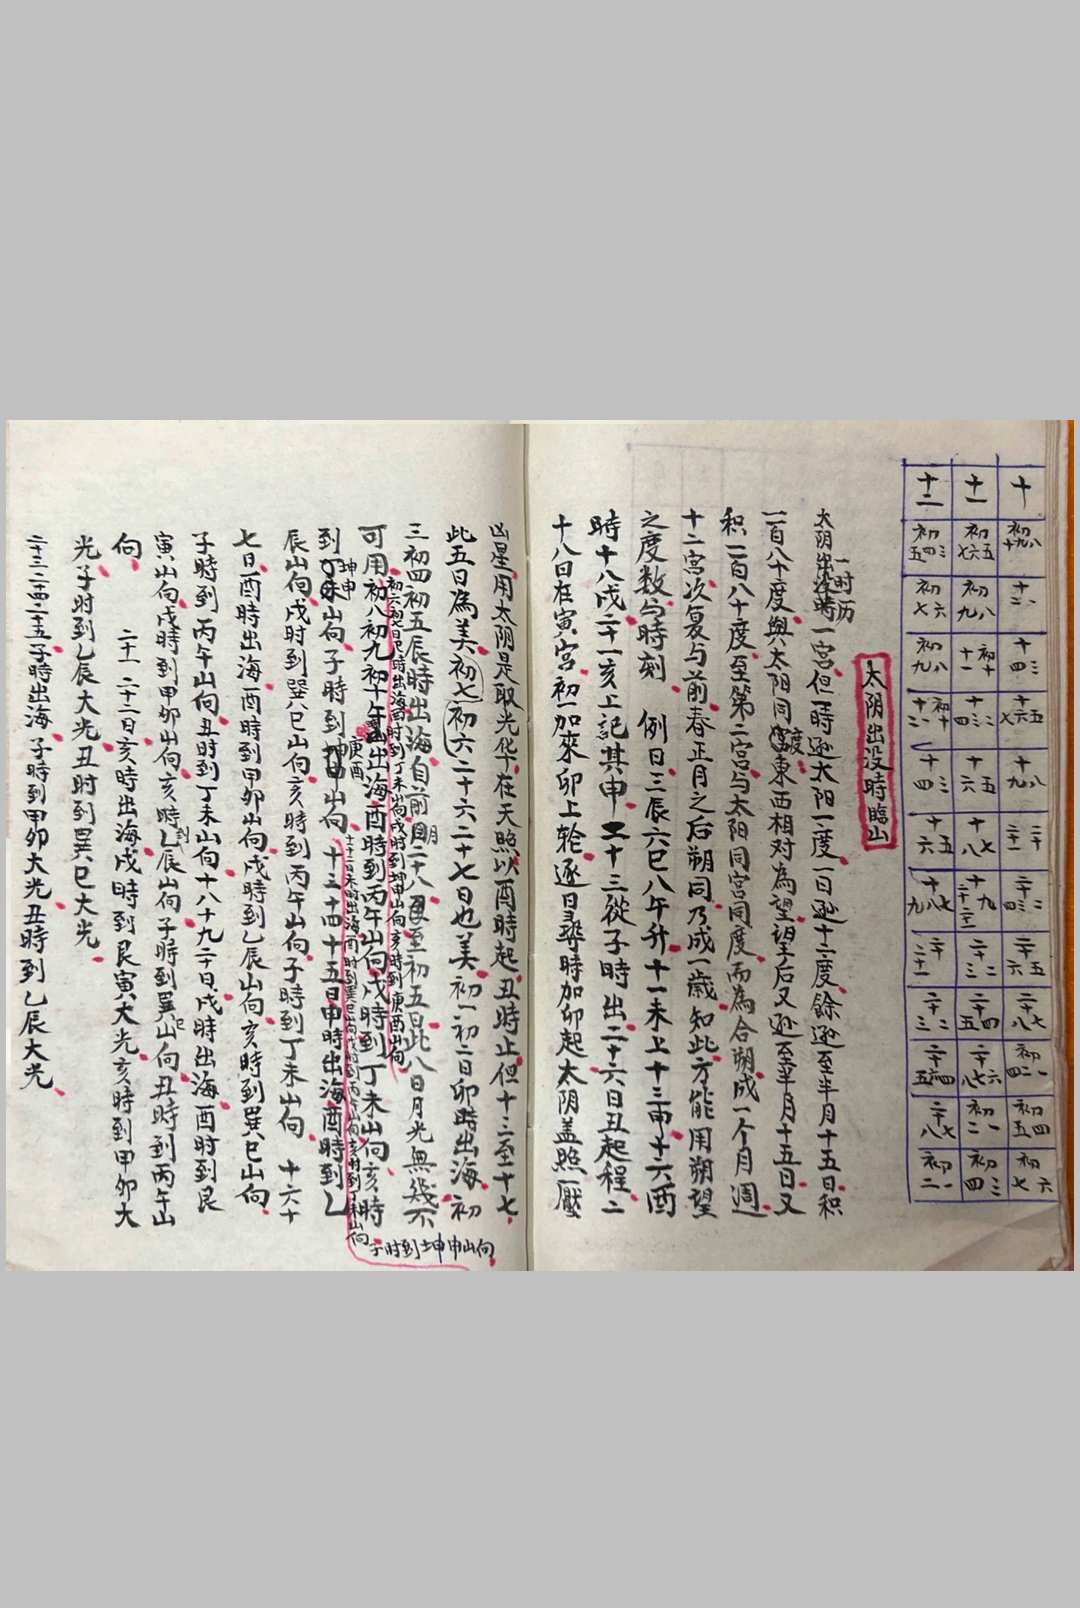 十 初八十九 十一 十二 十三 十四 十五六七 十八九 二十二十一 二十二三四 二十五六 二十七八 初一二 初四五 初六七
十一 初五六七 初八九 初十十一 十二三四 十五六 十七八 十九 二十二三 二十四五 二十六七八 初一二 初三四
十二 初三四五 初六七 初八九 初十十一十二 十三四 十五六 十七八九 二十二十一 二十二三 二十四五 二十七八 初一二
太阴出没時臨山
太阴出没時一时历一宫但一時逊太阳一度一日逊十二度餘逊至半月十五日积
一百八十度與太阳同度東西相对為望望后又逊至半月十五日又
积一百八十度至第二宫与太阳同宫同度而為合朔成一个月週
十二宫次复与前春正月之后朔同乃成一歲知此方能用朔望
之度数与時刻 例日三辰六巳八午升十一未上十三申十六酉
時十八戌二十一亥上記其申二十三從子時出二十六日丑起程二
十八日在寅宫初一加來卯上轮逐日尋時加卯起太阴盖照壓
凶星用太阴是取光华在天照以酉時起丑時止但十二至十七
此五日為美初七初六二十六二十七日也美初一初二日卯時出海初
三初四初五辰時出海自前月二十八至初五日此八日月光無幾不
可用初六初七日巳時出海酉时到丁未山向戌時到坤申山向亥時到庚酉山向
初八初九初十午出海酉時到丙午山向戌時到丁未山向亥時
到坤申山向子時到庚酉山向 十一十二日未时出海酉时到巽巳山向戌时到丙午山向亥时到丁未山向子时到坤申山向
十三十四十五日申時出海酉時到乙
辰山向戌时到巽巳山向亥時到丙午山向子時到丁未山向 十六十
七日酉時出海酉時到甲卯山向戌時到乙辰山向亥時到巽巳山向
子時到丙午山向丑时到丁未山向十八十九二十日戌時出海酉时到艮
寅山向戌時到甲卯山向亥時到乙辰山向子時到巽巳山向丑時到丙午山
向 二十一 二十二日亥時出海戌時到艮寅大光亥時到甲卯大
光子时到乙辰大光丑时到巽巳大光
二十三二十四二十五子時出海子時到甲卯大光丑時到乙辰大光